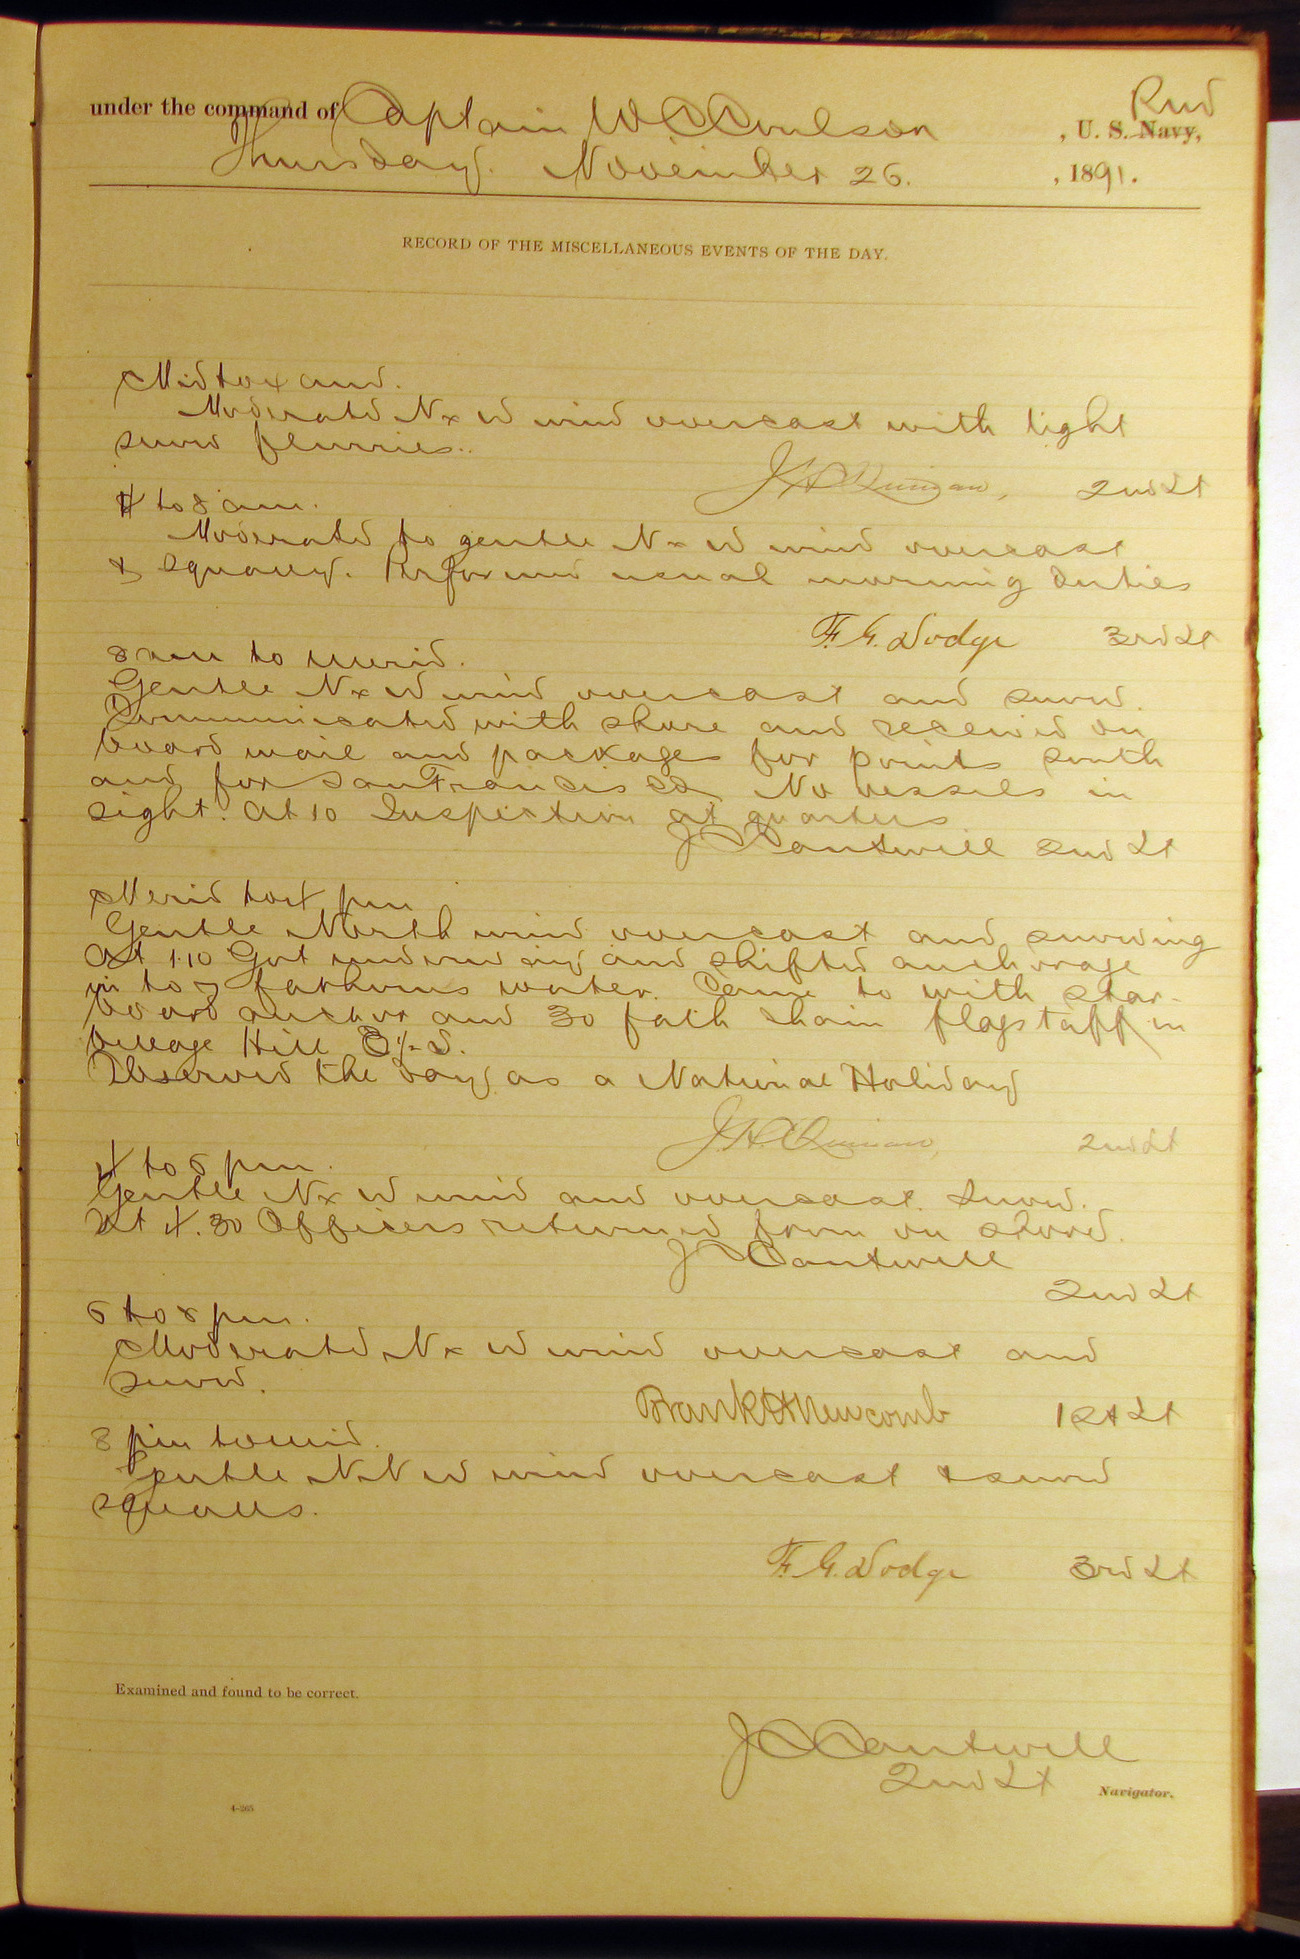 under the command of Captain W C Coulson , U. S. Navy, RM
Thursday. November 26. , 1891.
RECORD OF THE MISCELLANEOUS EVENTS OF THE DAY.
Mid to 4 am.
Moderate N x W wind overcast with light
snow flurries.
J H Quinan, 2nd Lt
4 to 8 am.
Moderate to gentle N x W wind overcast
& squally. Performed usual morning duties
F. G. Dodge 3rd Lt
8 am to merid.
Gentle N x W wind overcast and snow.
Communicated with shore and received on
board mail and packages for points south
and for San Francisco. No vessels in
sight. At 10 Inspection at quarters
J C Cantwell 2nd Lt
Merid to 4 pm
Gentle North wind overcast and snowing
At 1.10 Got underway and shifted anchorage
in to 7 fathoms water. Came to with star-
board anchor and 30 fath chain flagstaff on
Village Hill
Observed the day as a National Holiday
J. H. Quinan, 2nd Lt
4 to 6 pm.
Gentle N x W wind and overcast. Snow.
At 4.30 Officers returned from on shore.
J C Cantwell
2nd Lt
6 to 8 pm.
Moderate N x W wind overcast and
snow.
Frank H Newcomb 1st Lt
8 pm to mid.
Gentle N N W wind overcast & snow
squalls.
F. G. Dodge 3rd Lt
Examined and found to be correct.
J C Cantwell
2nd Lt Navigator.
4-265